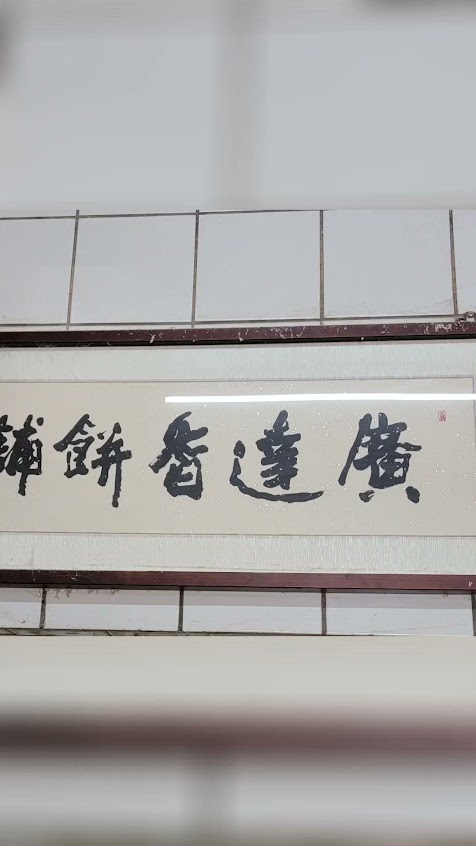 廣達香餅鋪